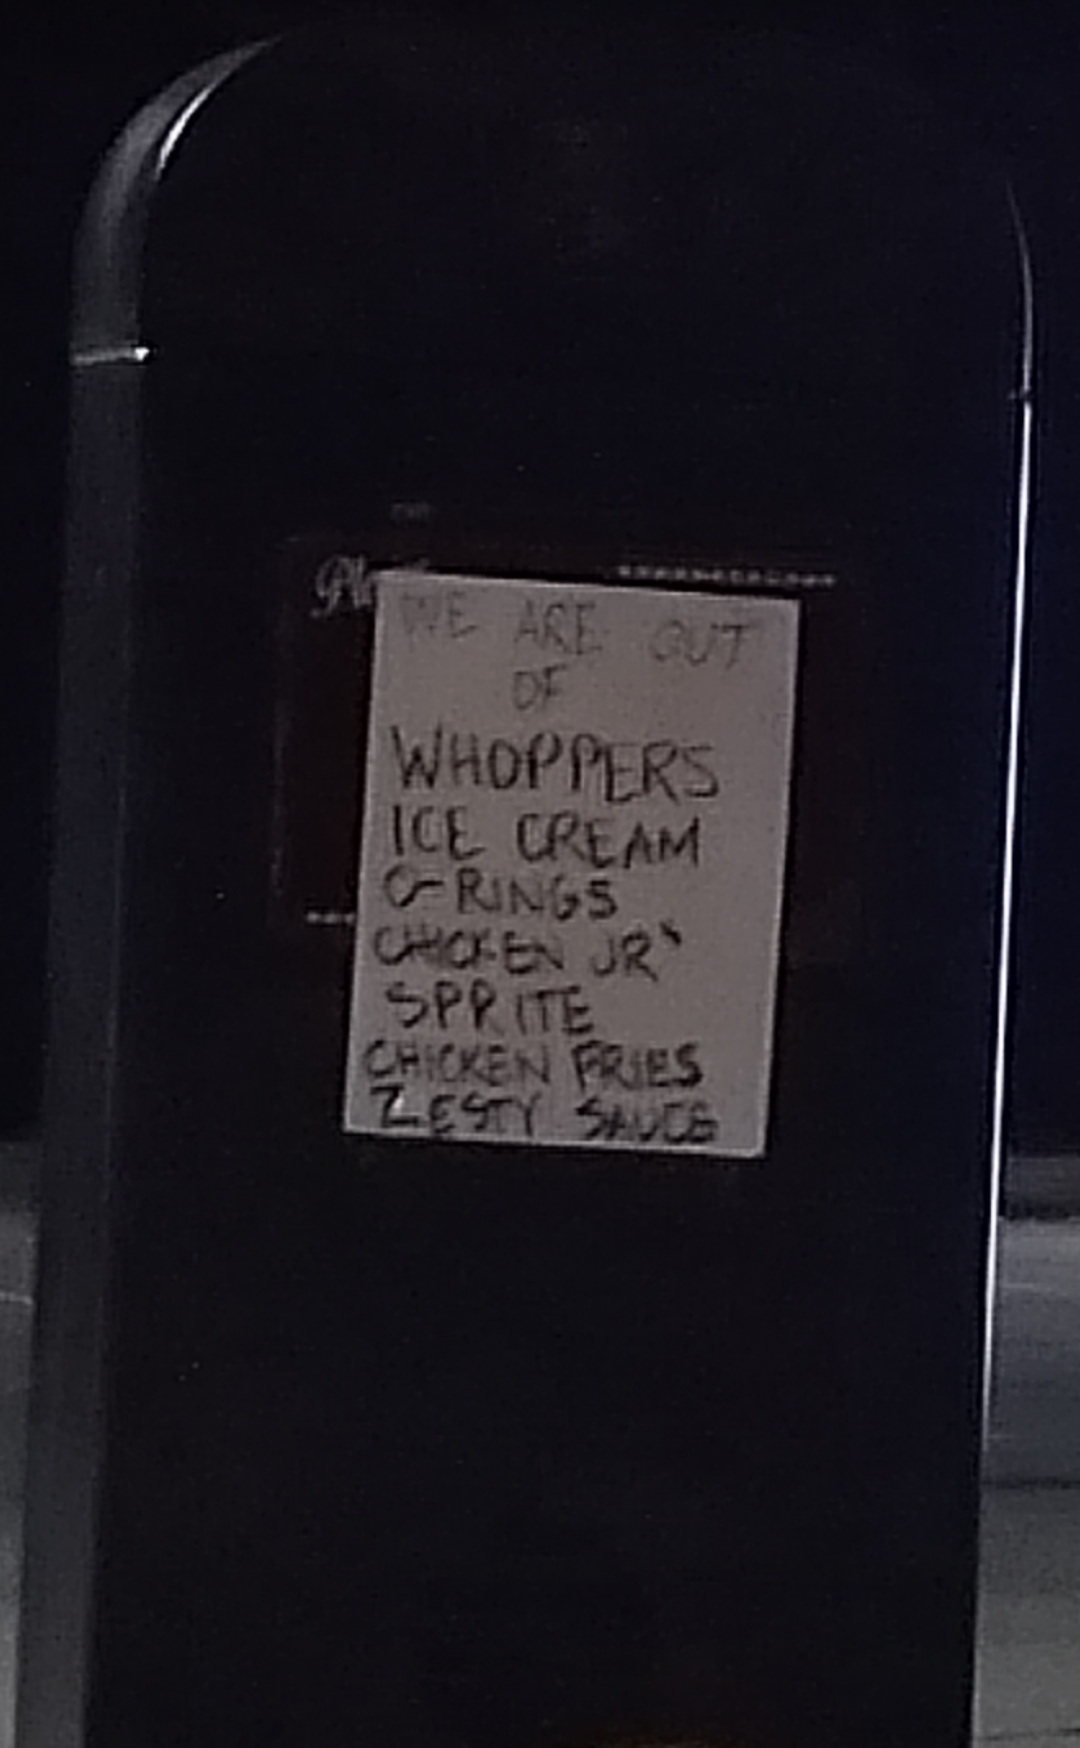 WE ARE OUT
OF
WHOPPERS
ICE CREAM
O-RINGS
CHICKEN JR'
SPRITE
CHICKEN FRIES
ZESTY SAUCE